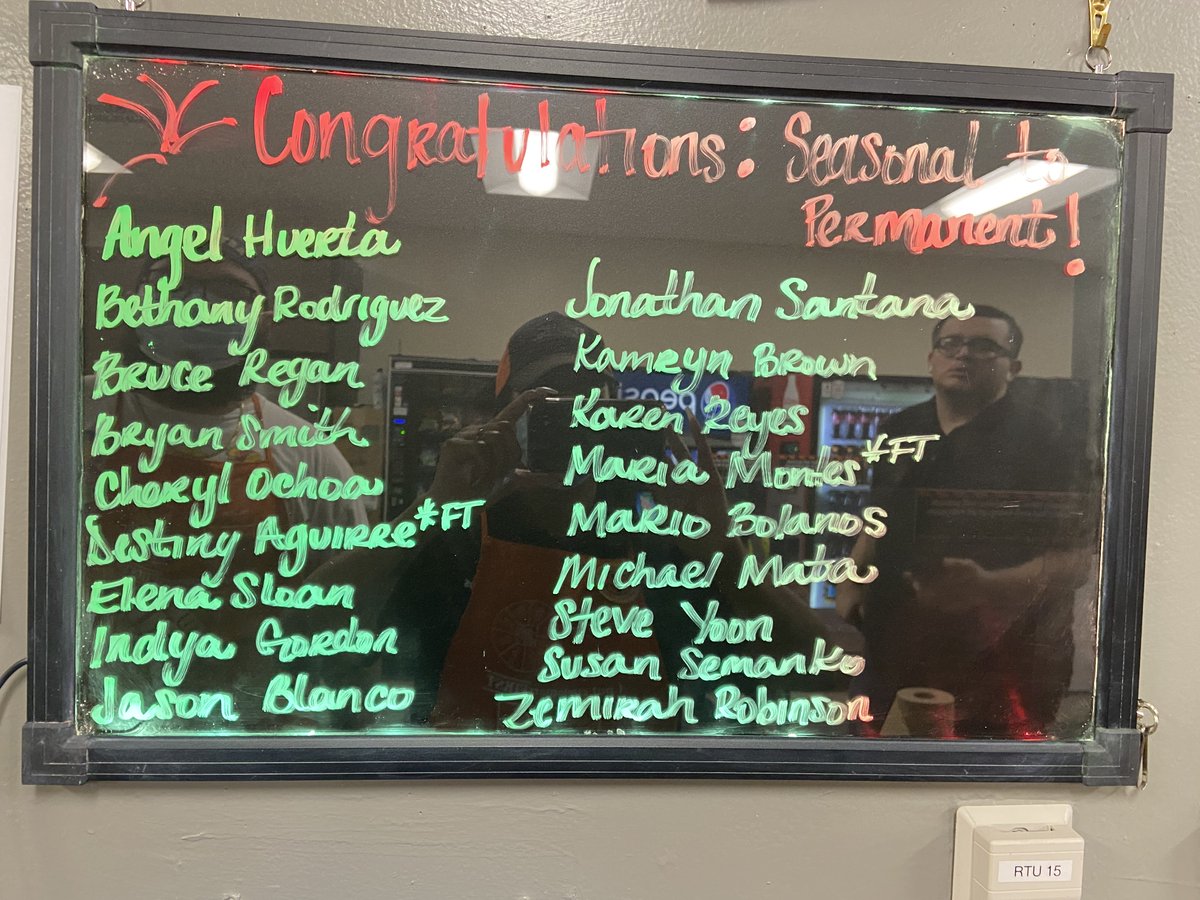 Congratulations: Seasonal to
Permanent!
Angel Huerta
Bethany Rodriguez
Bruce Regan
Bryan Smith
Cheryl Ochoa
Destiny Aguirre *FT
Elena Sloan
Indya Gordon
Jason Blanco
Jonathan Santana
Kamryn Brown
Karen Reyes
Maria Montes *FT
Mario Bolanos
Michael Mata
Steve Yoon
Susan Semanko
Zemirah Robinson
pepsi
RTU 15